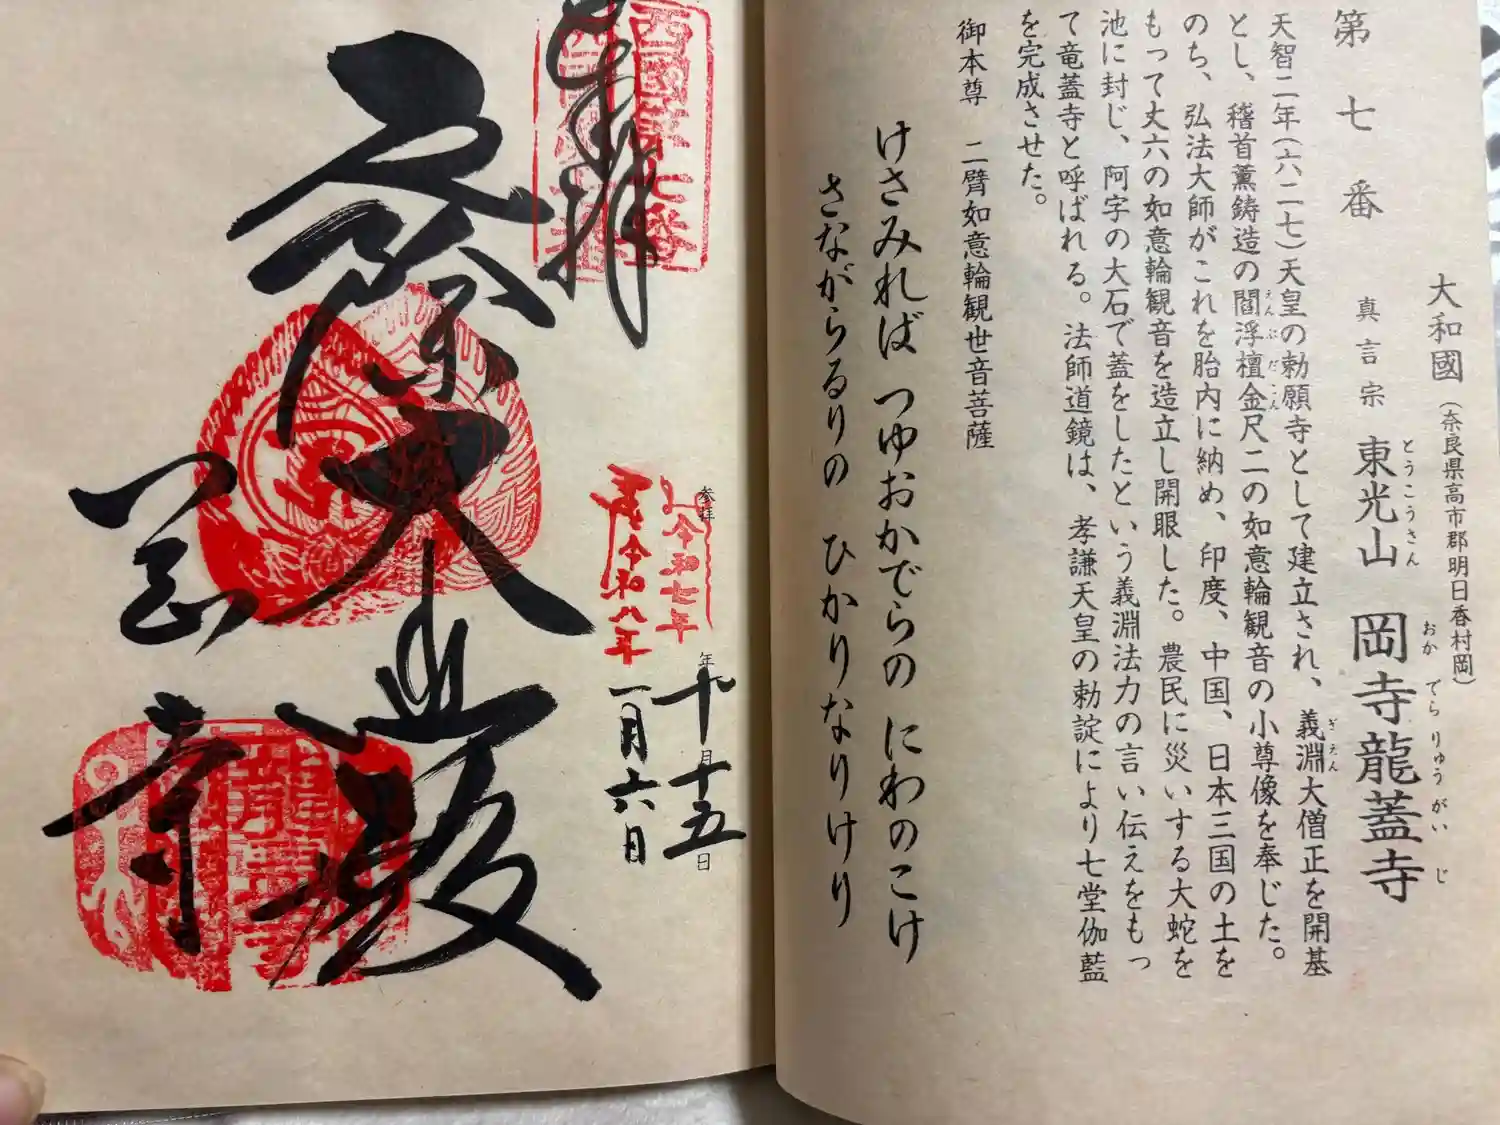 大和國(奈良県高市郡明日香村岡)
第七番 真言宗 東光山 岡寺龍蓋寺
とうこうさん おか でら りゅう がい じ
天智二年(六二七)天皇の勅願寺として建立され、義淵大僧正を開基
ぎえん
とし、稽首薫鋳造の閻浮檀金尺二の如意輪観音の小尊像を奉じた。
えんぶだごん
のち、弘法大師がこれを胎内に納め、印度、中国、日本三国の土を
もって丈六の如意輪観音を造立し開眼した。農民に災いする大蛇を
池に封じ、阿字の大石で蓋をしたという義淵法力の言い伝えをもっ
て竜蓋寺と呼ばれる。法師道鏡は、孝謙天皇の勅諚により七堂伽藍
を完成させた。
御本尊 二臂如意輪観世音菩薩
けさみれば つゆおかでらの にわのこけ
さながらるりの ひかりなりけり
西国第七番
奉拝
参拝
令和七年
年十月十五日
令和八年
一月六日
大悲殿
岡寺